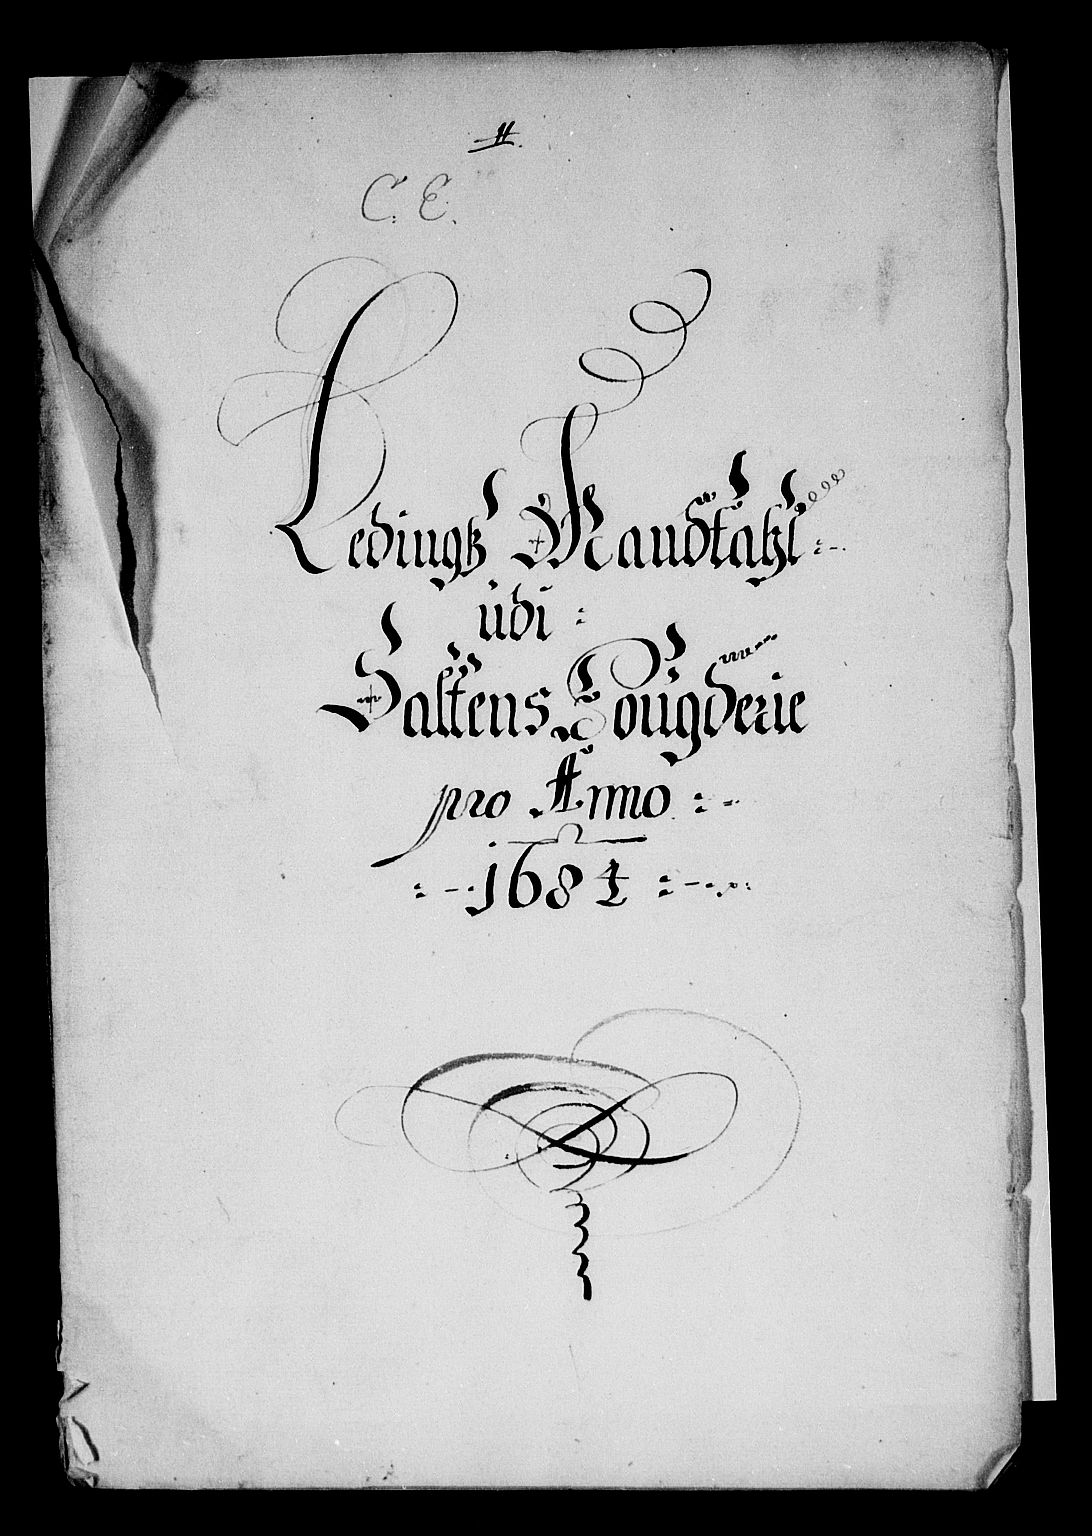 C. E.
Ledingß Mandtahl
udi
Saltens Fougderie
pro Anno
1684